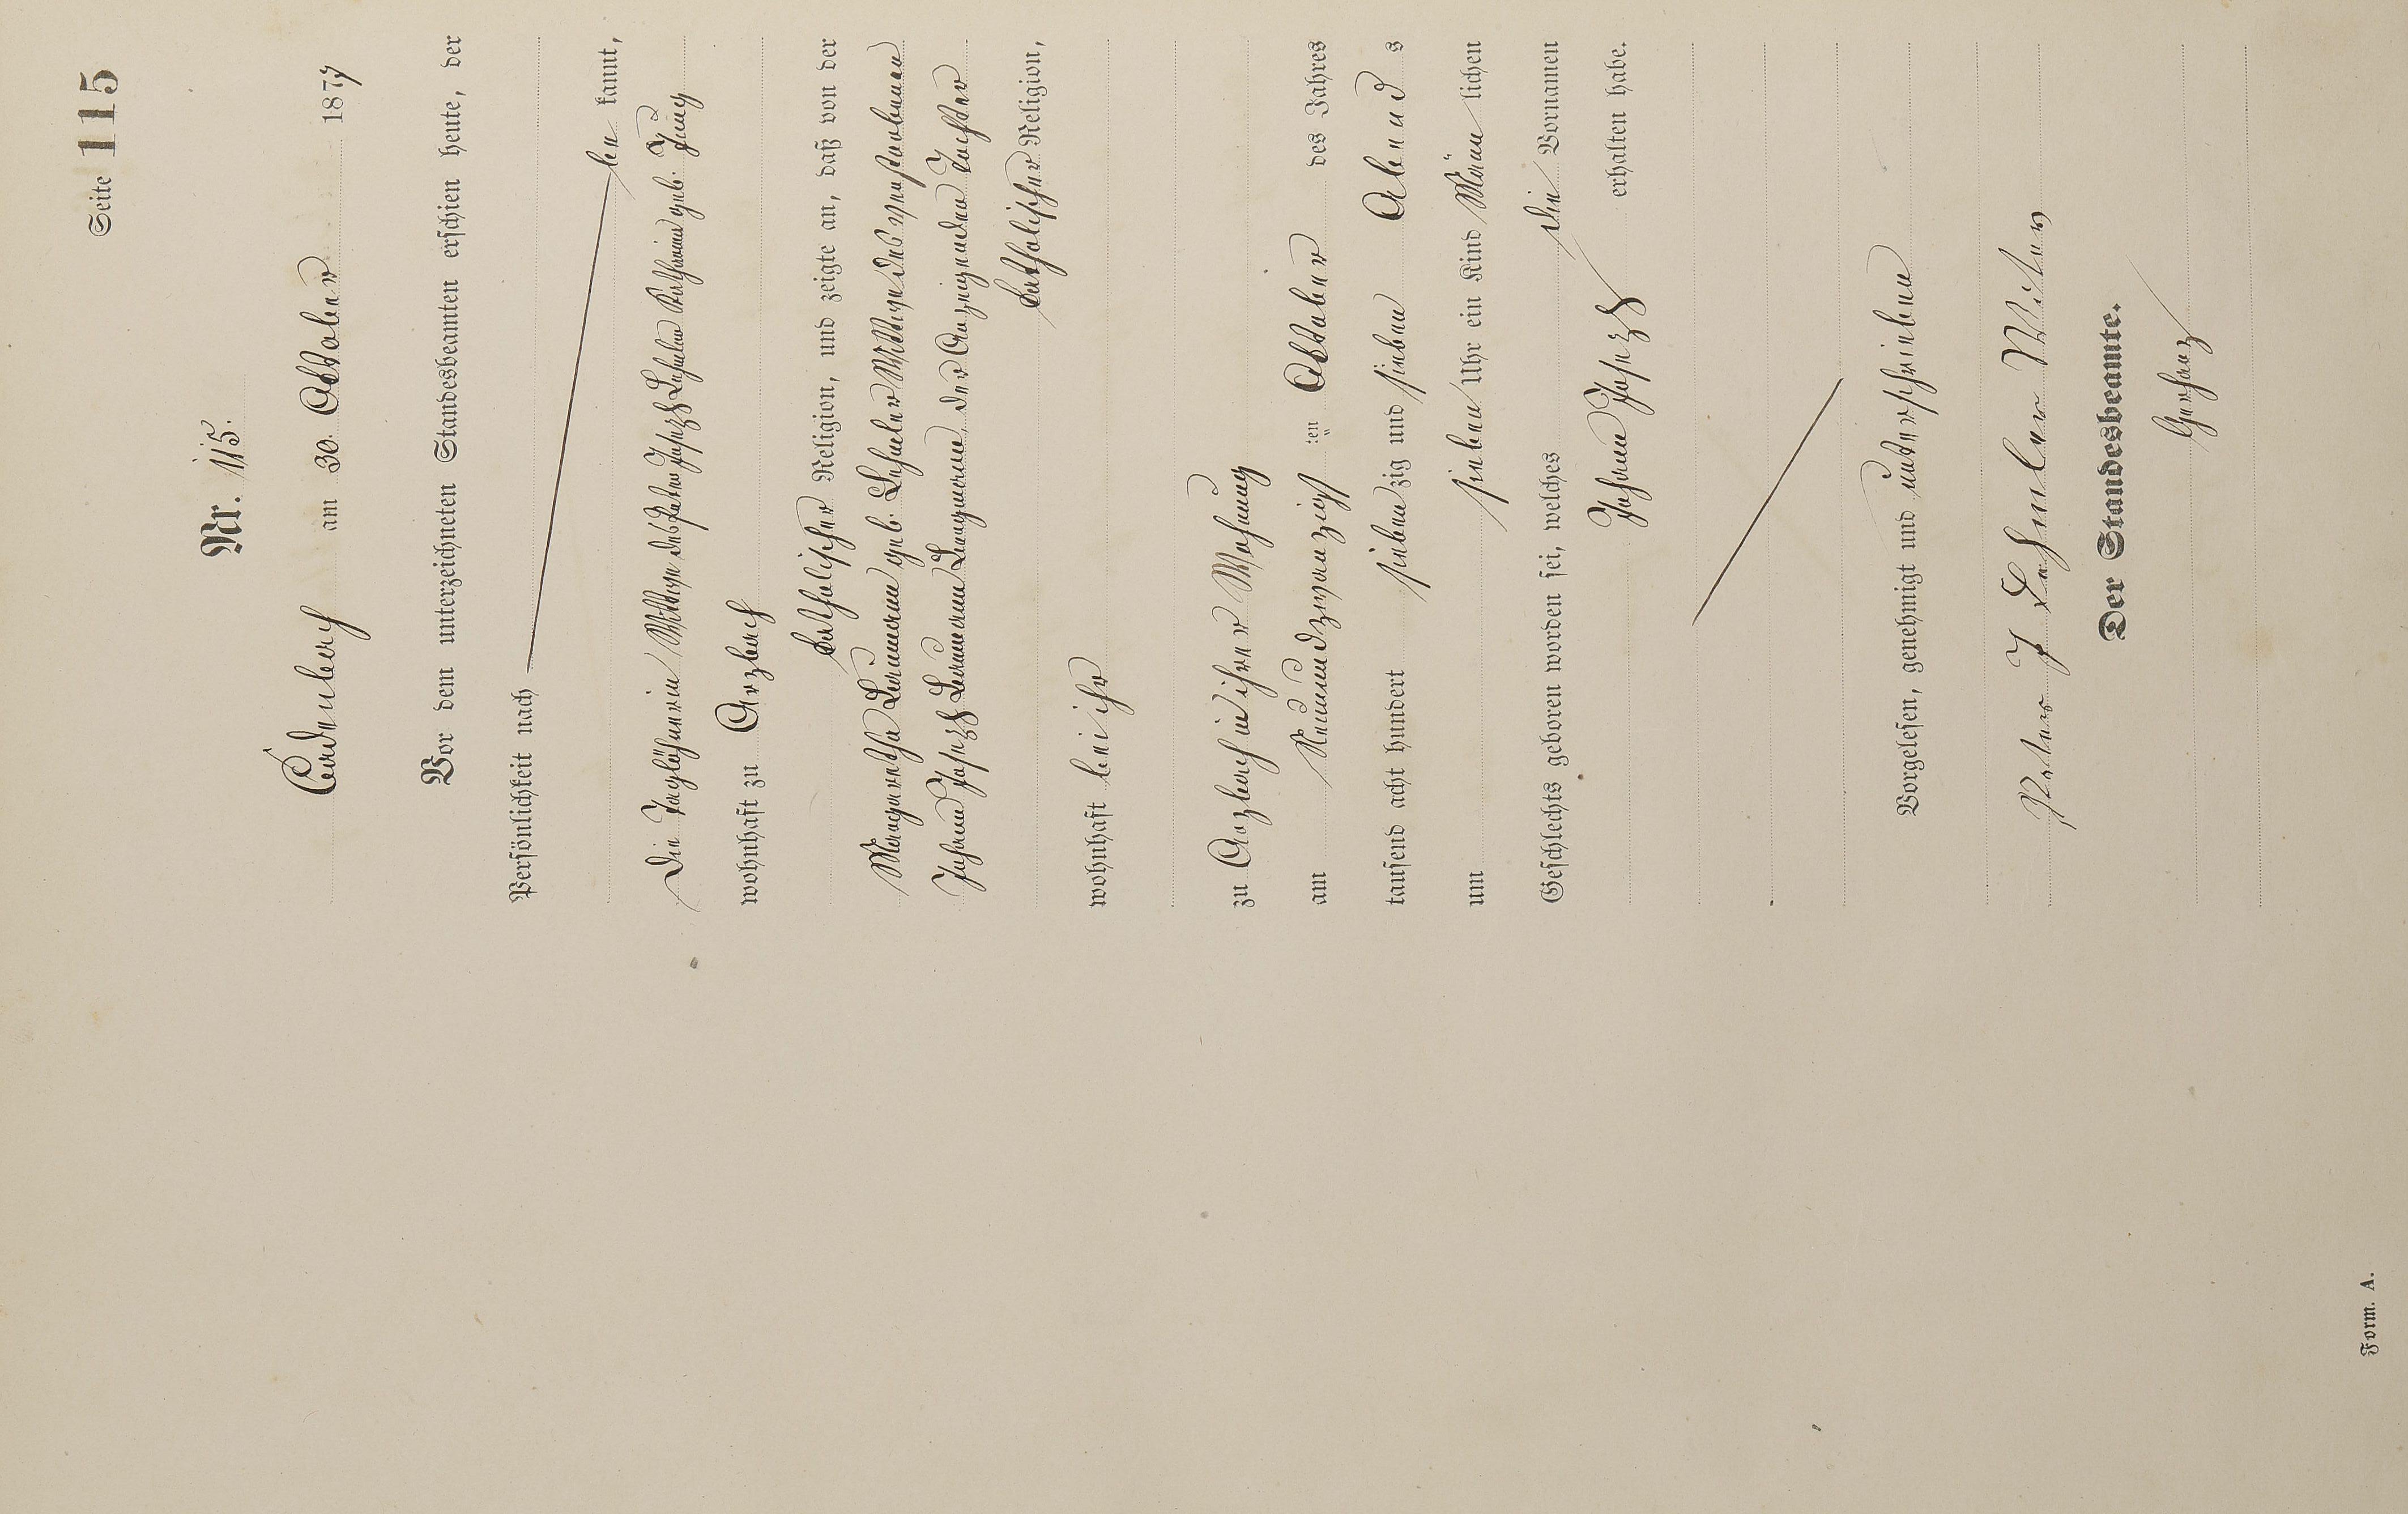 Seite 115
Nr. 115.
Cadenbach am 30. Oktober 1877
Vor dem unterzeichneten Standesbeamten erschien heute, der
Persönlichkeit nach
be kannt,
Die Taglöhnerin Wittwe des Peter Josef Lehmler Katharina geb. Jung
wohnhaft zu Arzbach
katholischer Religion, und zeigte an, daß von der
Margaretha geb. Lehmler Wittwe des verstorbenen
Johann Josef der Anzeigenden Tochter
katholischer Religion,
wohnhaft bei ihr
zu Arzbach in ihrer Wohnung
am Neunundzwanzigst ten Oktober des Jahres
tausend acht hundert sieben zig und sieben Abend s
um sieben Uhr ein Kind Männ lichen
Geschlechts geboren worden sei, welches die Vornamen
Johann Josef erhalten habe.
Vorgelesen, genehmigt und unterschrieben
Peter J Lehmler Witw
Der Standesbeamte.
Form. A.